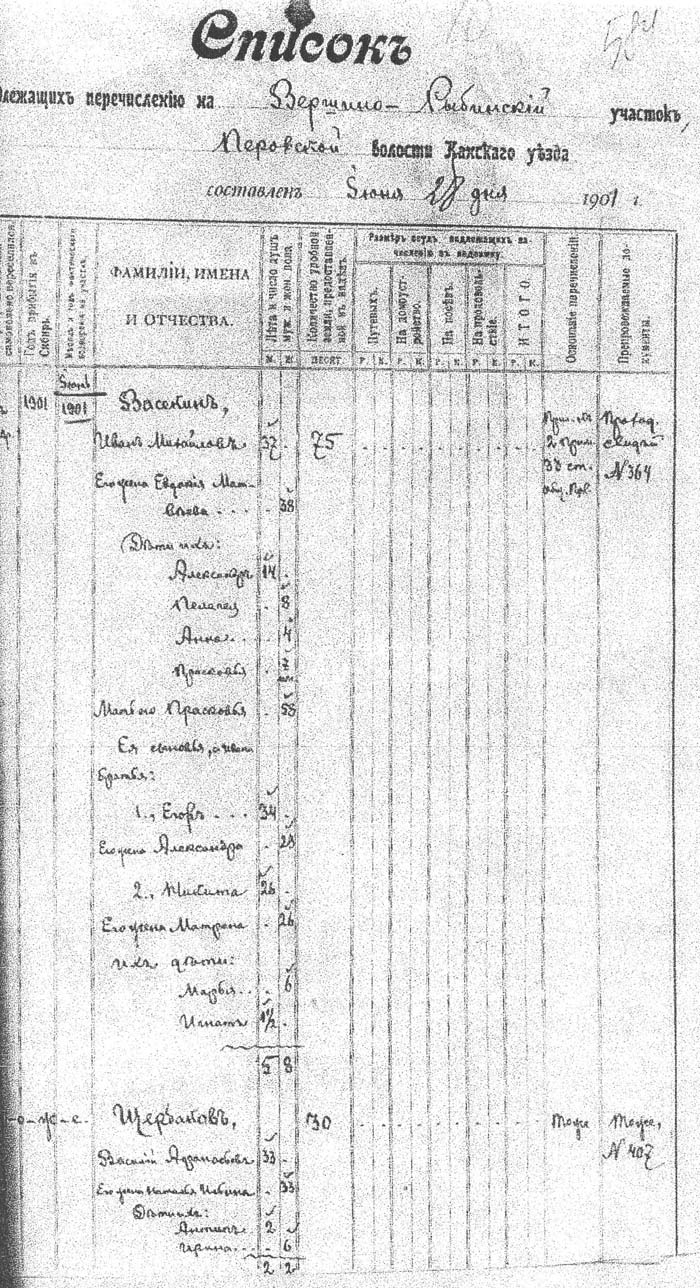 Списокъ
длежащихъ перечисленію на Вершино-Рыбинскій участокъ,
Перовской волости Канскаго уѣзда
составленъ Іюня 28 дня 1901 г.
самовольно переселился.
Годъ прибытія въ Сибирь.
ФАМИЛІИ, ИМЕНА И ОТЧЕСТВА.
Лѣта и число душъ муж. и жен. пола.
М. Ж.
Количество удобной земли, предоставленной въ надѣлъ.
ДЕСЯТ.
Размѣръ ссудъ, надлежащихъ зачисленію въ недоимку.
Путевыхъ.
На домоустройство.
На посѣвъ.
На продовольствіе.
ИТОГО.
Р. К. Р. К. Р. К. Р. К. Р. К.
Основаніе перечисленія.
Препровождаемые документы.
1901 Іюнь 1901 Васекинъ,
Иванъ Михайловъ 37 75 2 прим. 33 ст. Проход. свидѣт № 364
Его жена Евдокія Матвѣева 38
Дѣти ихъ:
Александръ 14
Пелагея 8
Анна 4
Прасковья
Мать его Прасковья 58
Ея сыновья, а Ивана
братья:
1., Егоръ 34
Его жена Александра 28
2., Никита 26
Его жена Матрена 26
ихъ дѣти:
Марья 6
Игнатъ 1½
5 8
-о-ж-е. Щербаковъ, 30 тоже тоже,
Василій Афанасьевъ 33 № 407
Его жена Наталья 33
Дѣти ихъ:
Антипъ 2
Ирина 6
2 2